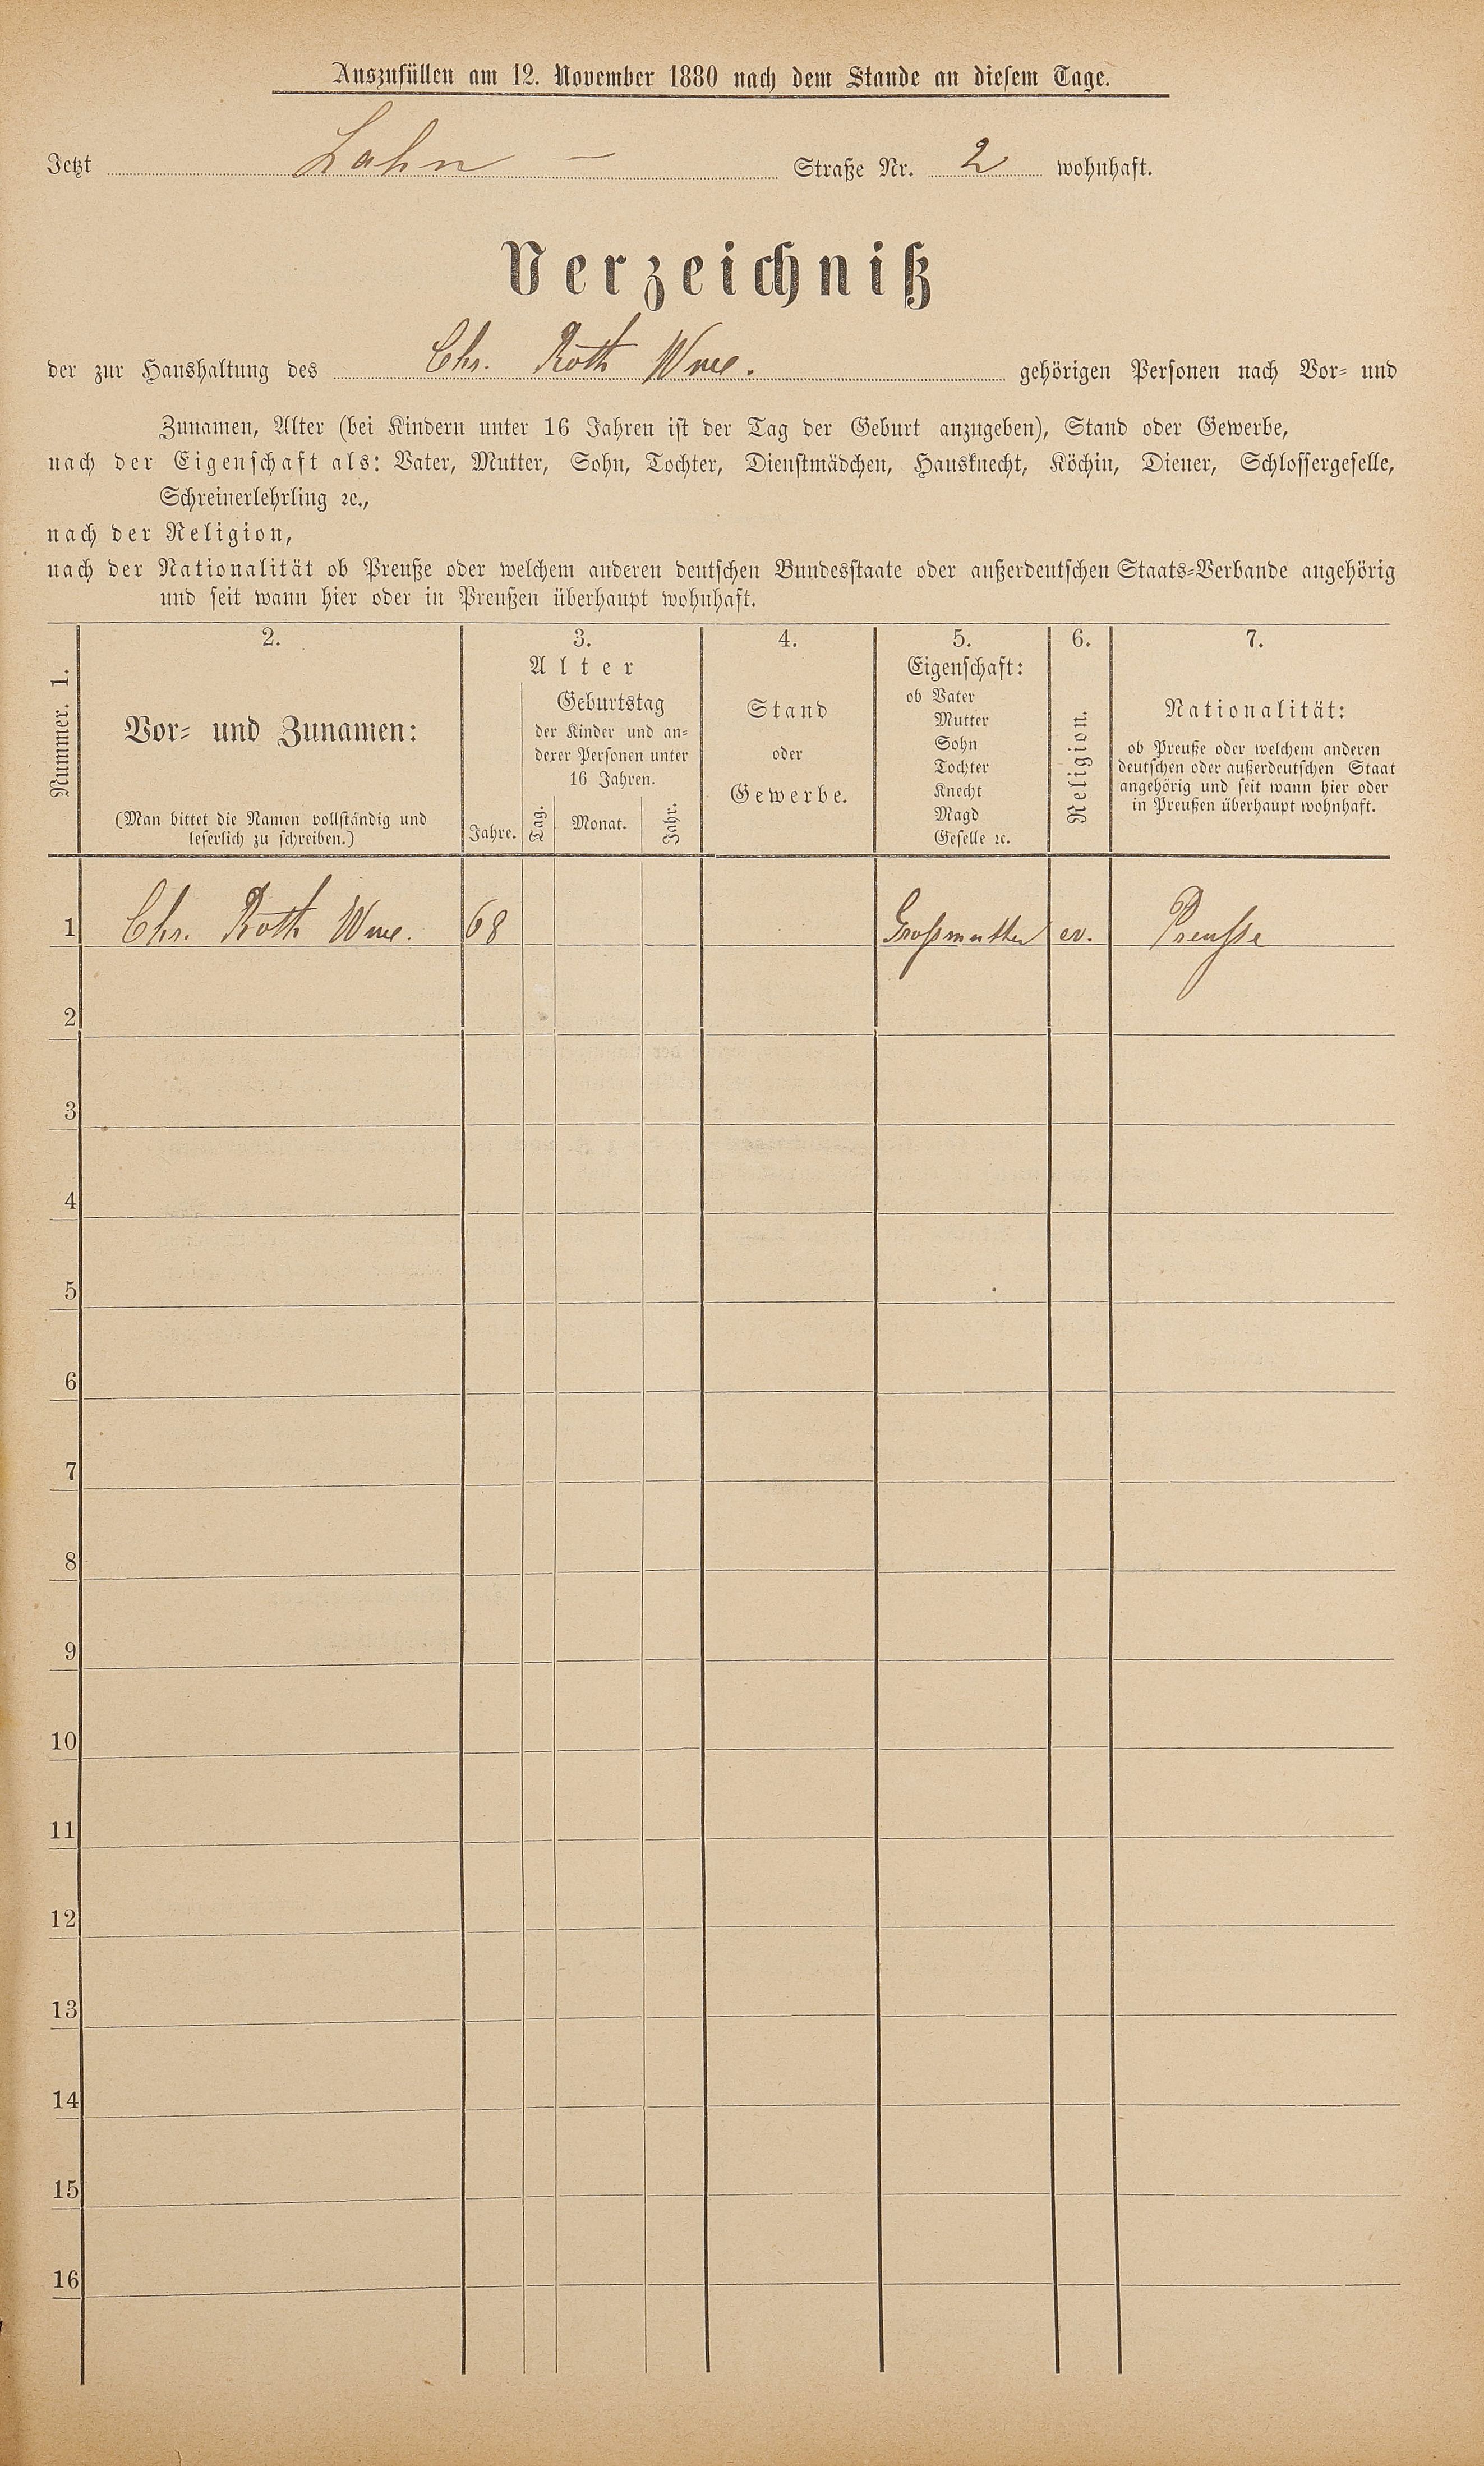 Auszufüllen am 12. November 1880 nach dem Stande an diesem Tage.
Jetzt Lahn — Straße Nr. 2 wohnhaft.
Verzeichniß
der zur Haushaltung des Chr. Roth Wwe. gehörigen Personen nach Vor- und
Zunamen, Alter (bei Kindern unter 16 Jahren ist der Tag der Geburt anzugeben), Stand oder Gewerbe,
nach der Eigenschaft als: Vater, Mutter, Sohn, Tochter, Dienstmädchen, Hausknecht, Köchin, Diener, Schlossergeselle,
Schreinerlehrling ꝛc.,
nach der Religion,
nach der Nationalität ob Preuße oder welchem anderen deutschen Bundesstaate oder außerdeutschen Staats-Verbande angehörig
und seit wann hier oder in Preußen überhaupt wohnhaft.
Nummer. 1.
2.
Vor- und Zunamen:
(Man bittet die Namen vollständig und
leserlich zu schreiben.)
3.
Alter
Jahre.
Geburtstag
der Kinder und an-
derer Personen unter
16 Jahren.
Tag. Monat. Jahr.
4.
Stand
oder
Gewerbe.
5.
Eigenschaft:
ob Vater
Mutter
Sohn
Tochter
Knecht
Magd
Geselle ꝛc.
6.
Religion.
7.
Nationalität:
ob Preuße oder welchem anderen
deutschen oder außerdeutschen Staat
angehörig und seit wann hier oder
in Preußen überhaupt wohnhaft.
1 Chr. Roth Wwe. 68 Großmutter ev. Preusse
2
3
4
5
6
7
8
9
10
11
12
13
14
15
16